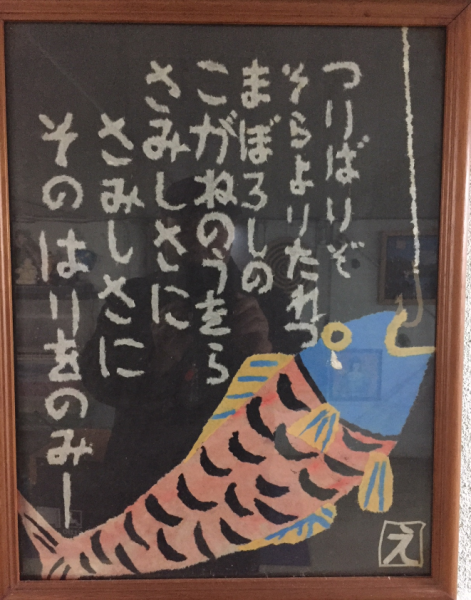 つりばりぞ
そらよりたれつ
まぼろしの
こがねのうをら
さみしさに
さみしさに
そのはりをのみー
え